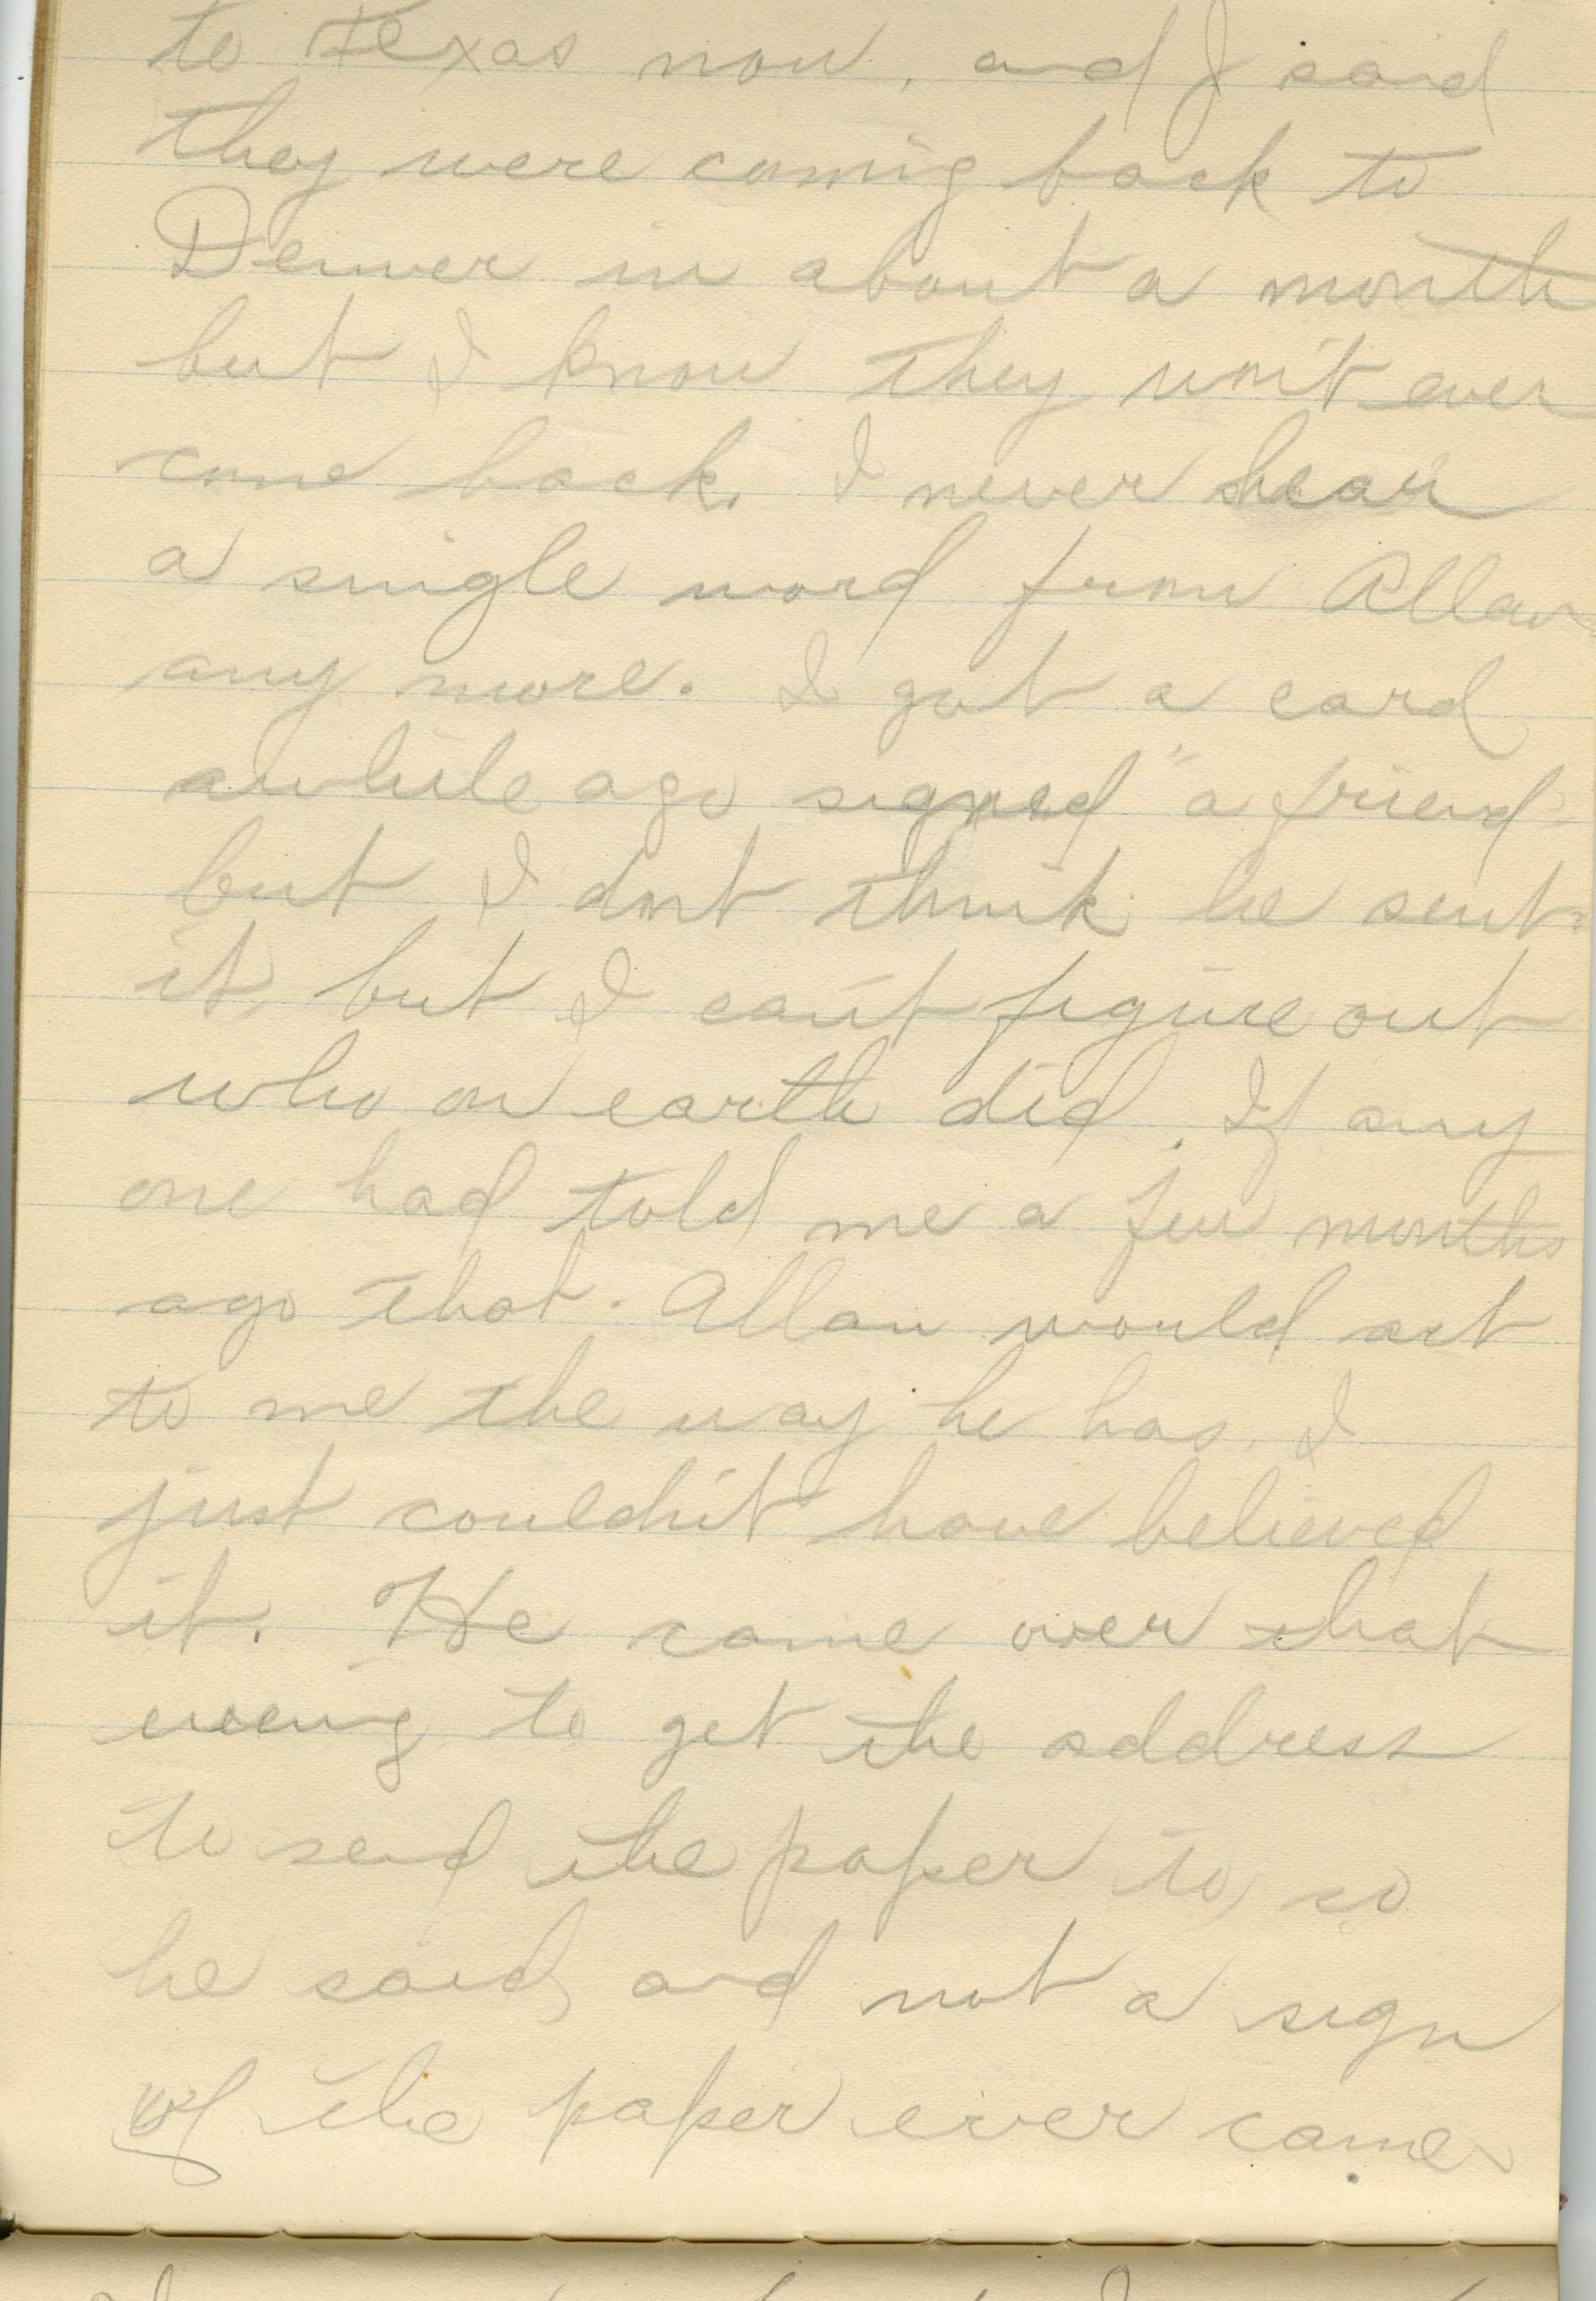 to Texas now, and I said
they were coming back to
Denver in about a month
but I know they won't ever
come back. I never hear
a single word from Allan
any more. I got a card
awhile ago signed "a friend
but I don't think he sent
it, but I can't figure out
who on earth did. If any
one had told me a few months
ago that Allan would act
to me the way he has, I
just couldn't have believed
it. He came over that
evening to get the address
to send the paper to, so
he said, and not a sign
of the paper ever came